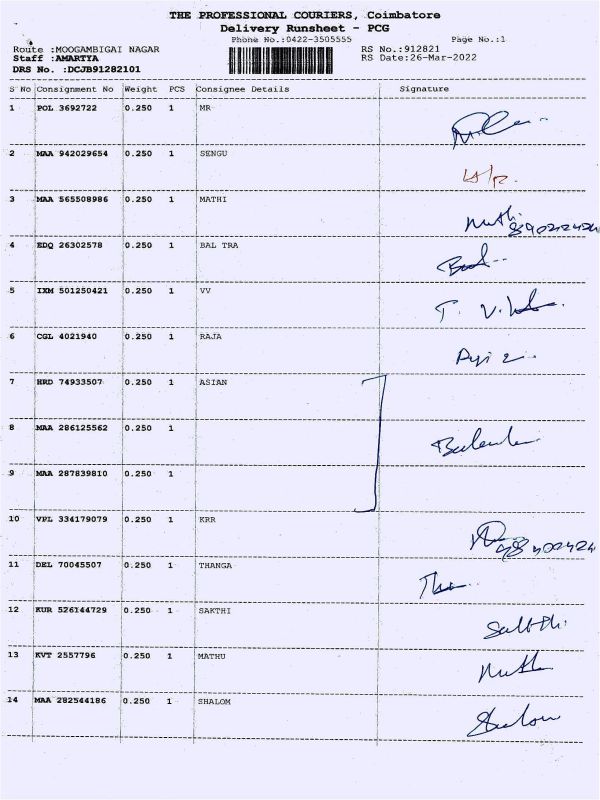 THE PROFESSIONAL COURIERS, Coimbatore
Delivery Runsheet - PCG
Phone No.:0422-3505555 Page No.:1
Route :MOOGAMBIGAI NAGAR RS No.:912821
Staff :AMARTYA RS Date:26-Mar-2022
DRS No. :DCJB91282101
S No Consignment No Weight PCS Consignee Details Signature
1 POL 3692722 0.250 1 MR
2 MAA 942029654 0.250 1 SENGU
3 MAA 565508986 0.250 1 MATHI
4 EDQ 26302578 0.250 1 BAL TRA
5 IXM 501250421 0.250 1 VV
6 CGL 4021940 0.250 1 RAJA
7 HRD 74933507 0.250 1 ASIAN
8 MAA 286125562 0.250 1
9 MAA 287839810 0.250 1
10 VPL 334179079 0.250 1 KRR
11 DEL 70045507 0.250 1 THANGA
12 KUR 526144729 0.250 1 SAKTHI
13 KVT 2557796 0.250 1 MATHU
14 MAA 282544186 0.250 1 SHALOM